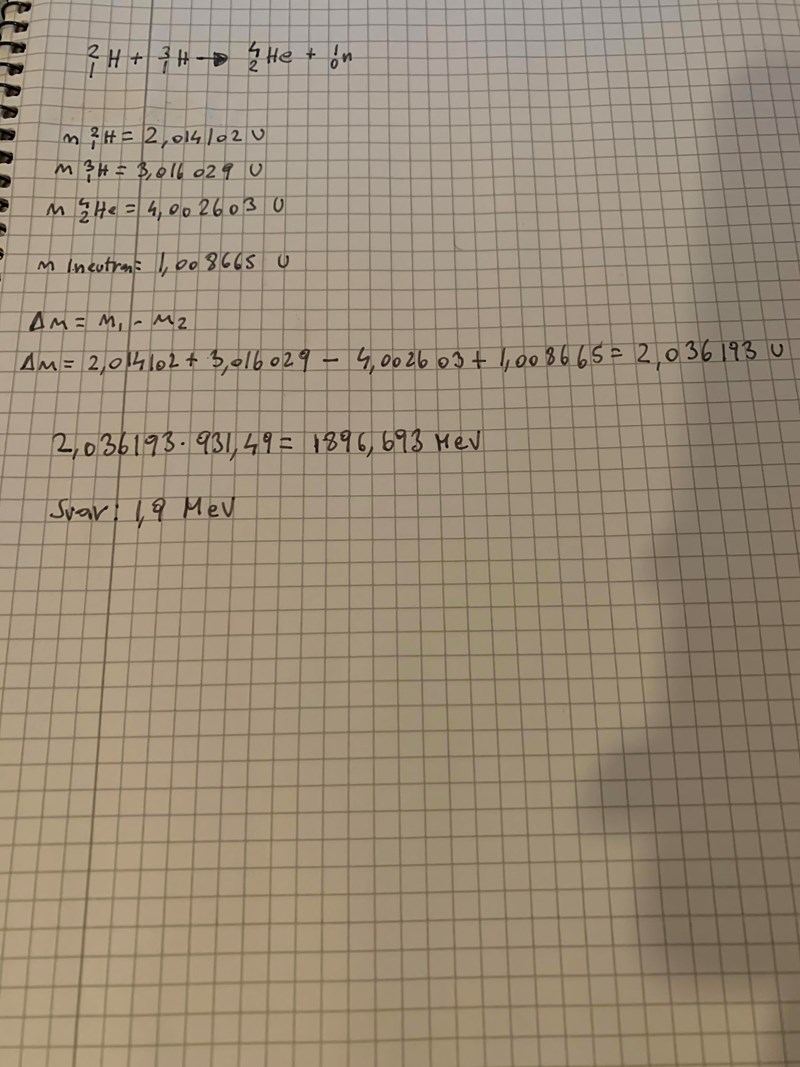 ²₁H + ³₁H → ⁴₂He + ¹₀n
m ²₁H = 2,014102 U
m ³₁H = 3,016029 U
m ⁴₂He = 4,002603 U
m 1neutron = 1,008665 U
Δm = m₁ - m₂
Δm = 2,014102 + 3,016029 - 4,002603 + 1,008665 = 2,036193 U
2,036193 · 931,49 = 1896,693 MeV
Svar: 1,9 MeV